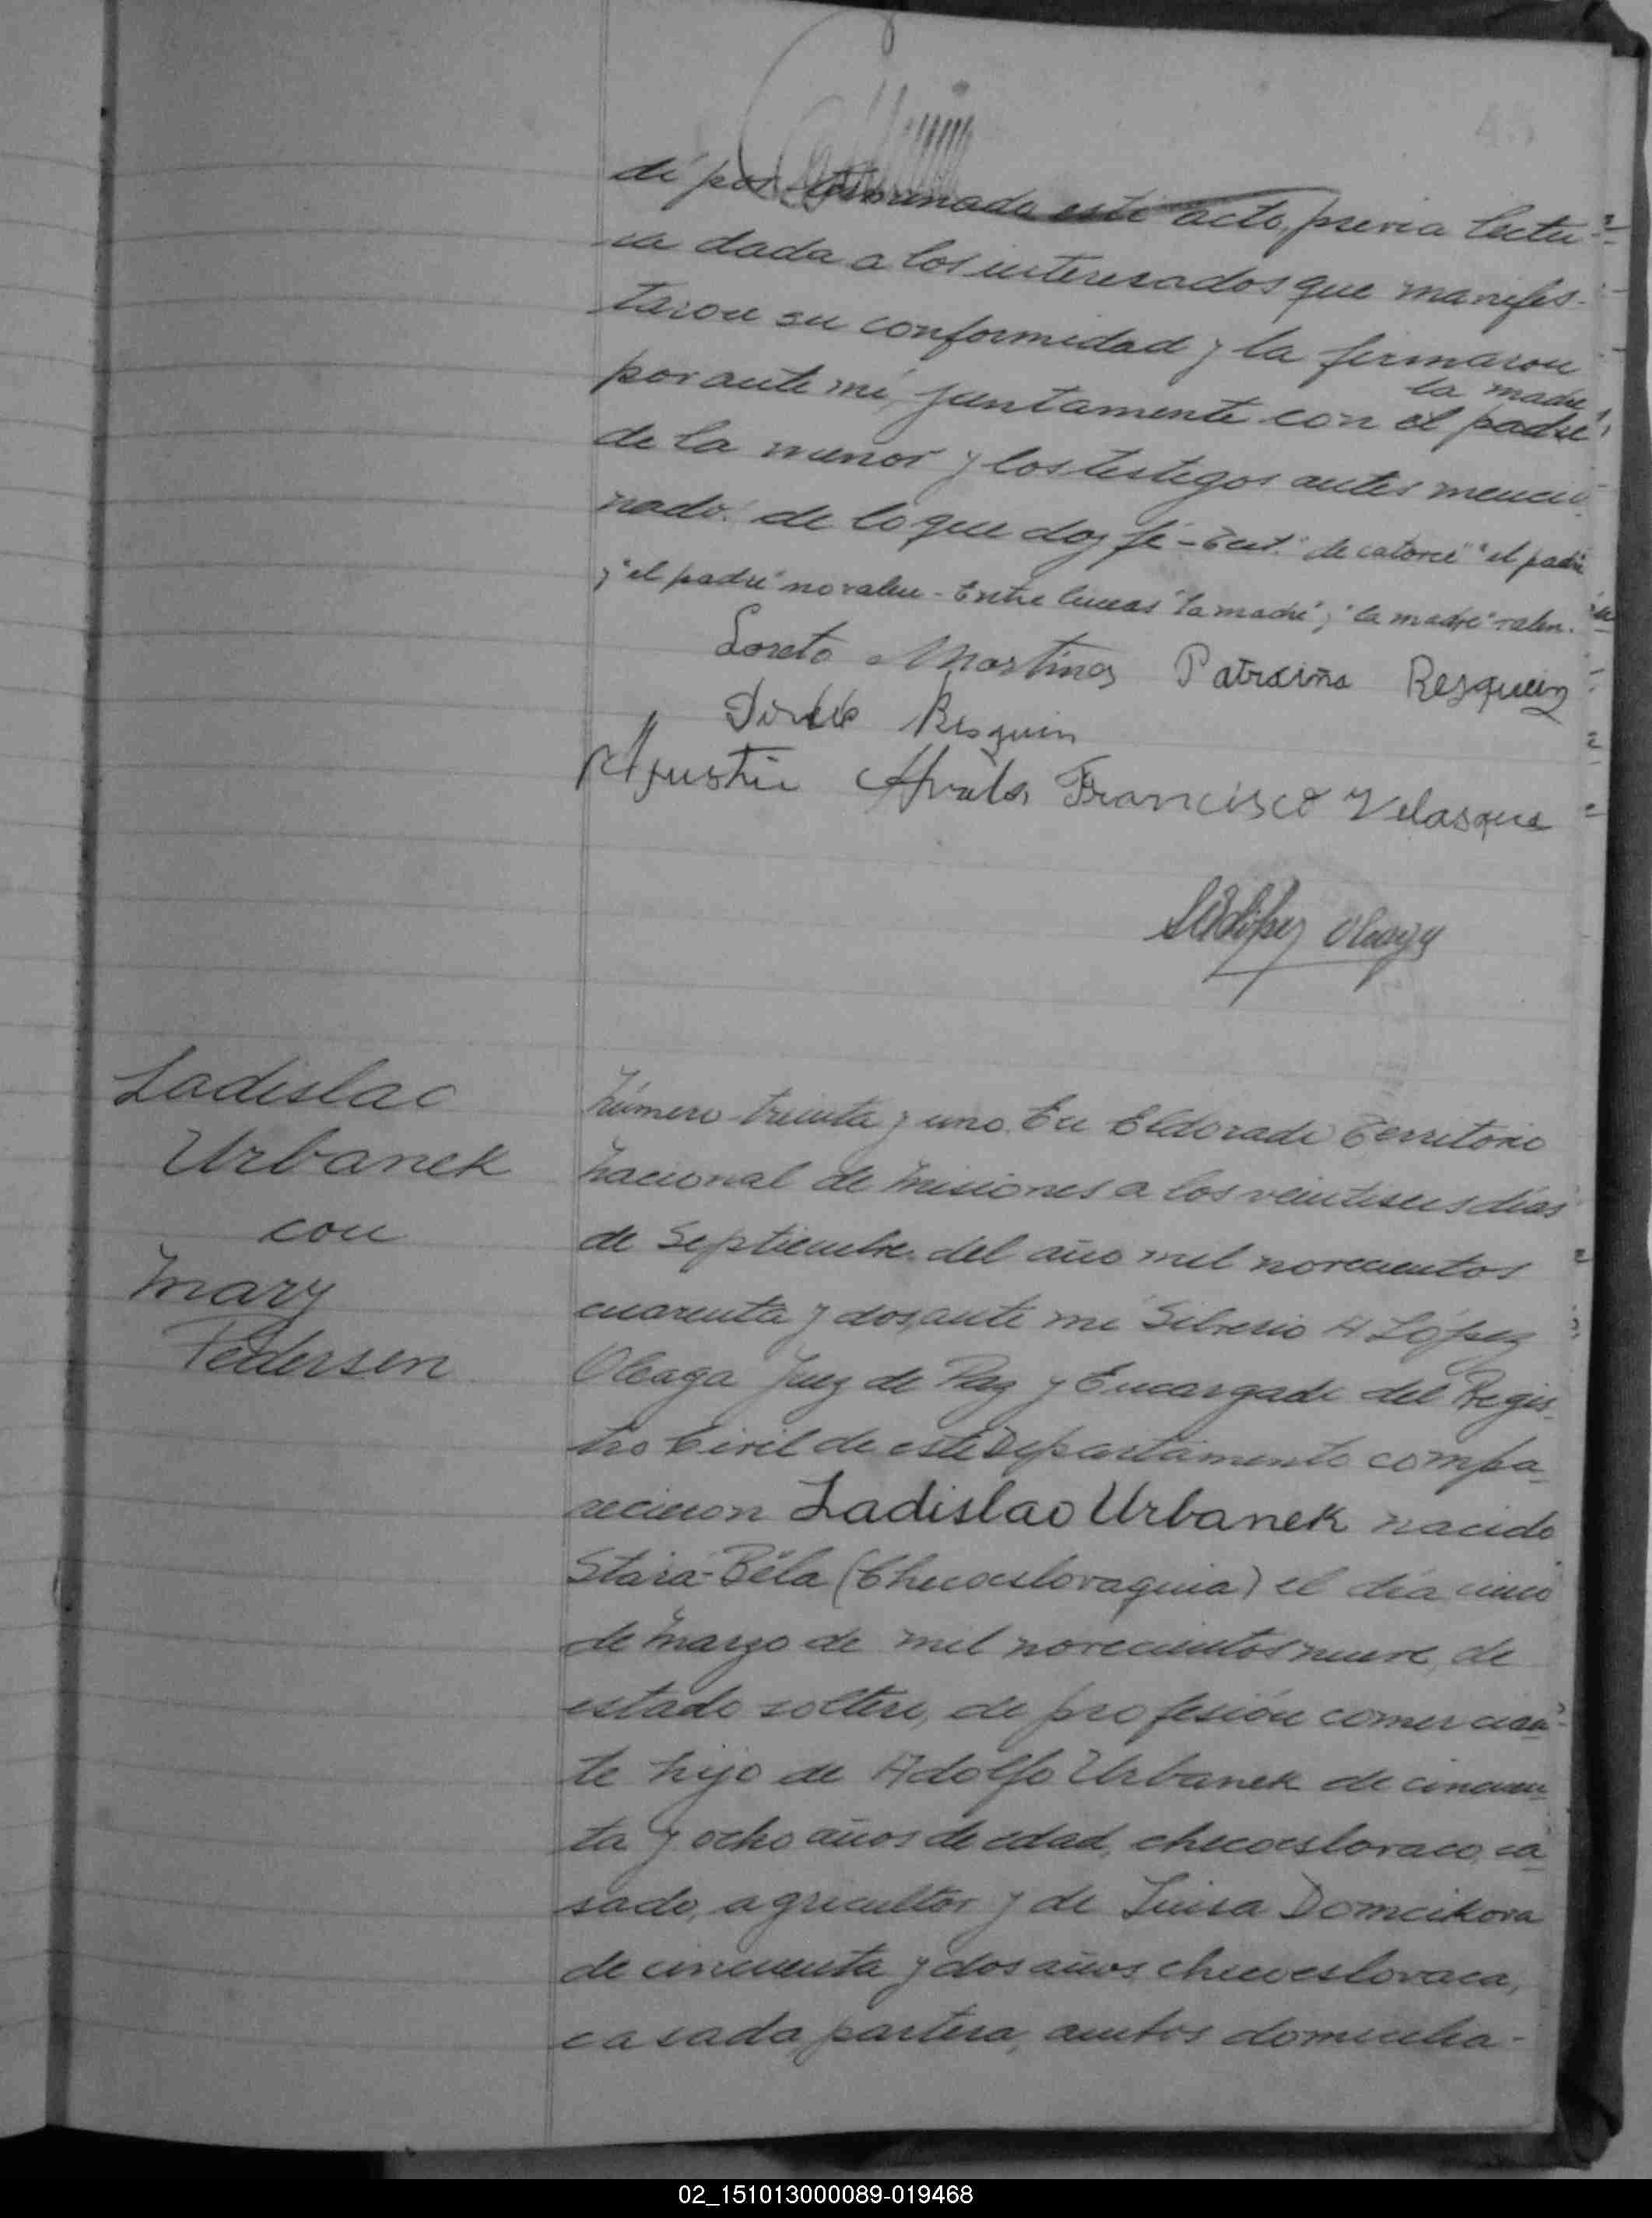 45
dí por terminado este acto, previa lectu-
ra dada a los interesados que manifes-
taron su conformidad y la firmaron
la madre
por ante mí, juntamente con el padre
de la menor y los testigos antes mencio
nado. de lo que doy fé - Test. "de catorce" "el padre
y "el padre" no valen - Entre lineas "la madre" y "la madre" valen.
Loreto Martinez Patrcina Resquin
Resquin
Agustin Francisco Velasque
López Oleaga
Ladislao
Urbanek
con
Mary
Pedersen
Número treinta y uno. En Eldorado Territorio
Nacional de Misiones a los veintiseis días
de Septiembre del año mil novecientos
cuarenta y dos, ante mí Silverio A López
Oleaga Juez de Paz y Encargado del Regis
tro Civil de este Departamento compa
recieron Ladislao Urbanek nacido
Stará-Béla (Checoeslovaquia) el día cinco
de Marzo de mil novecientos nueve, de
estado soltero, de profesión comercian-
te hijo de Adolfo Urbanek de cincuen
ta y ocho años de edad, checoeslovaco, ca
sado, agricultor y de Luisa Domcikova
de cincuenta y dos años, checoeslovaca,
casada, partera, ambos domicilia-
02_151013000089-019468